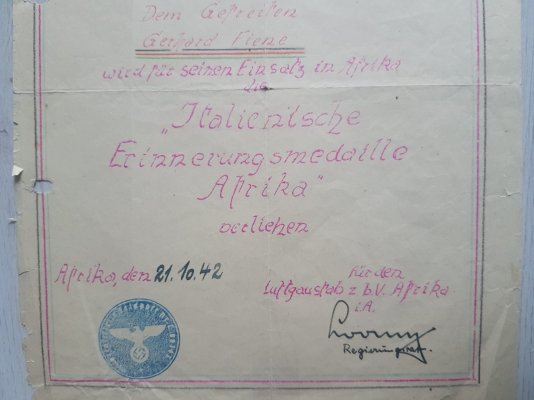 Dem Gefreiten
Gerhard Fiene
wird für seinen Einsatz in Afrika
die
„Italienische
Erinnerungsmedaille
Afrika“
verliehen
Afrika, den 21.10.42
Für den
Luftgaustab z.b.V. Afrika
i.A.
Regierungsrat.